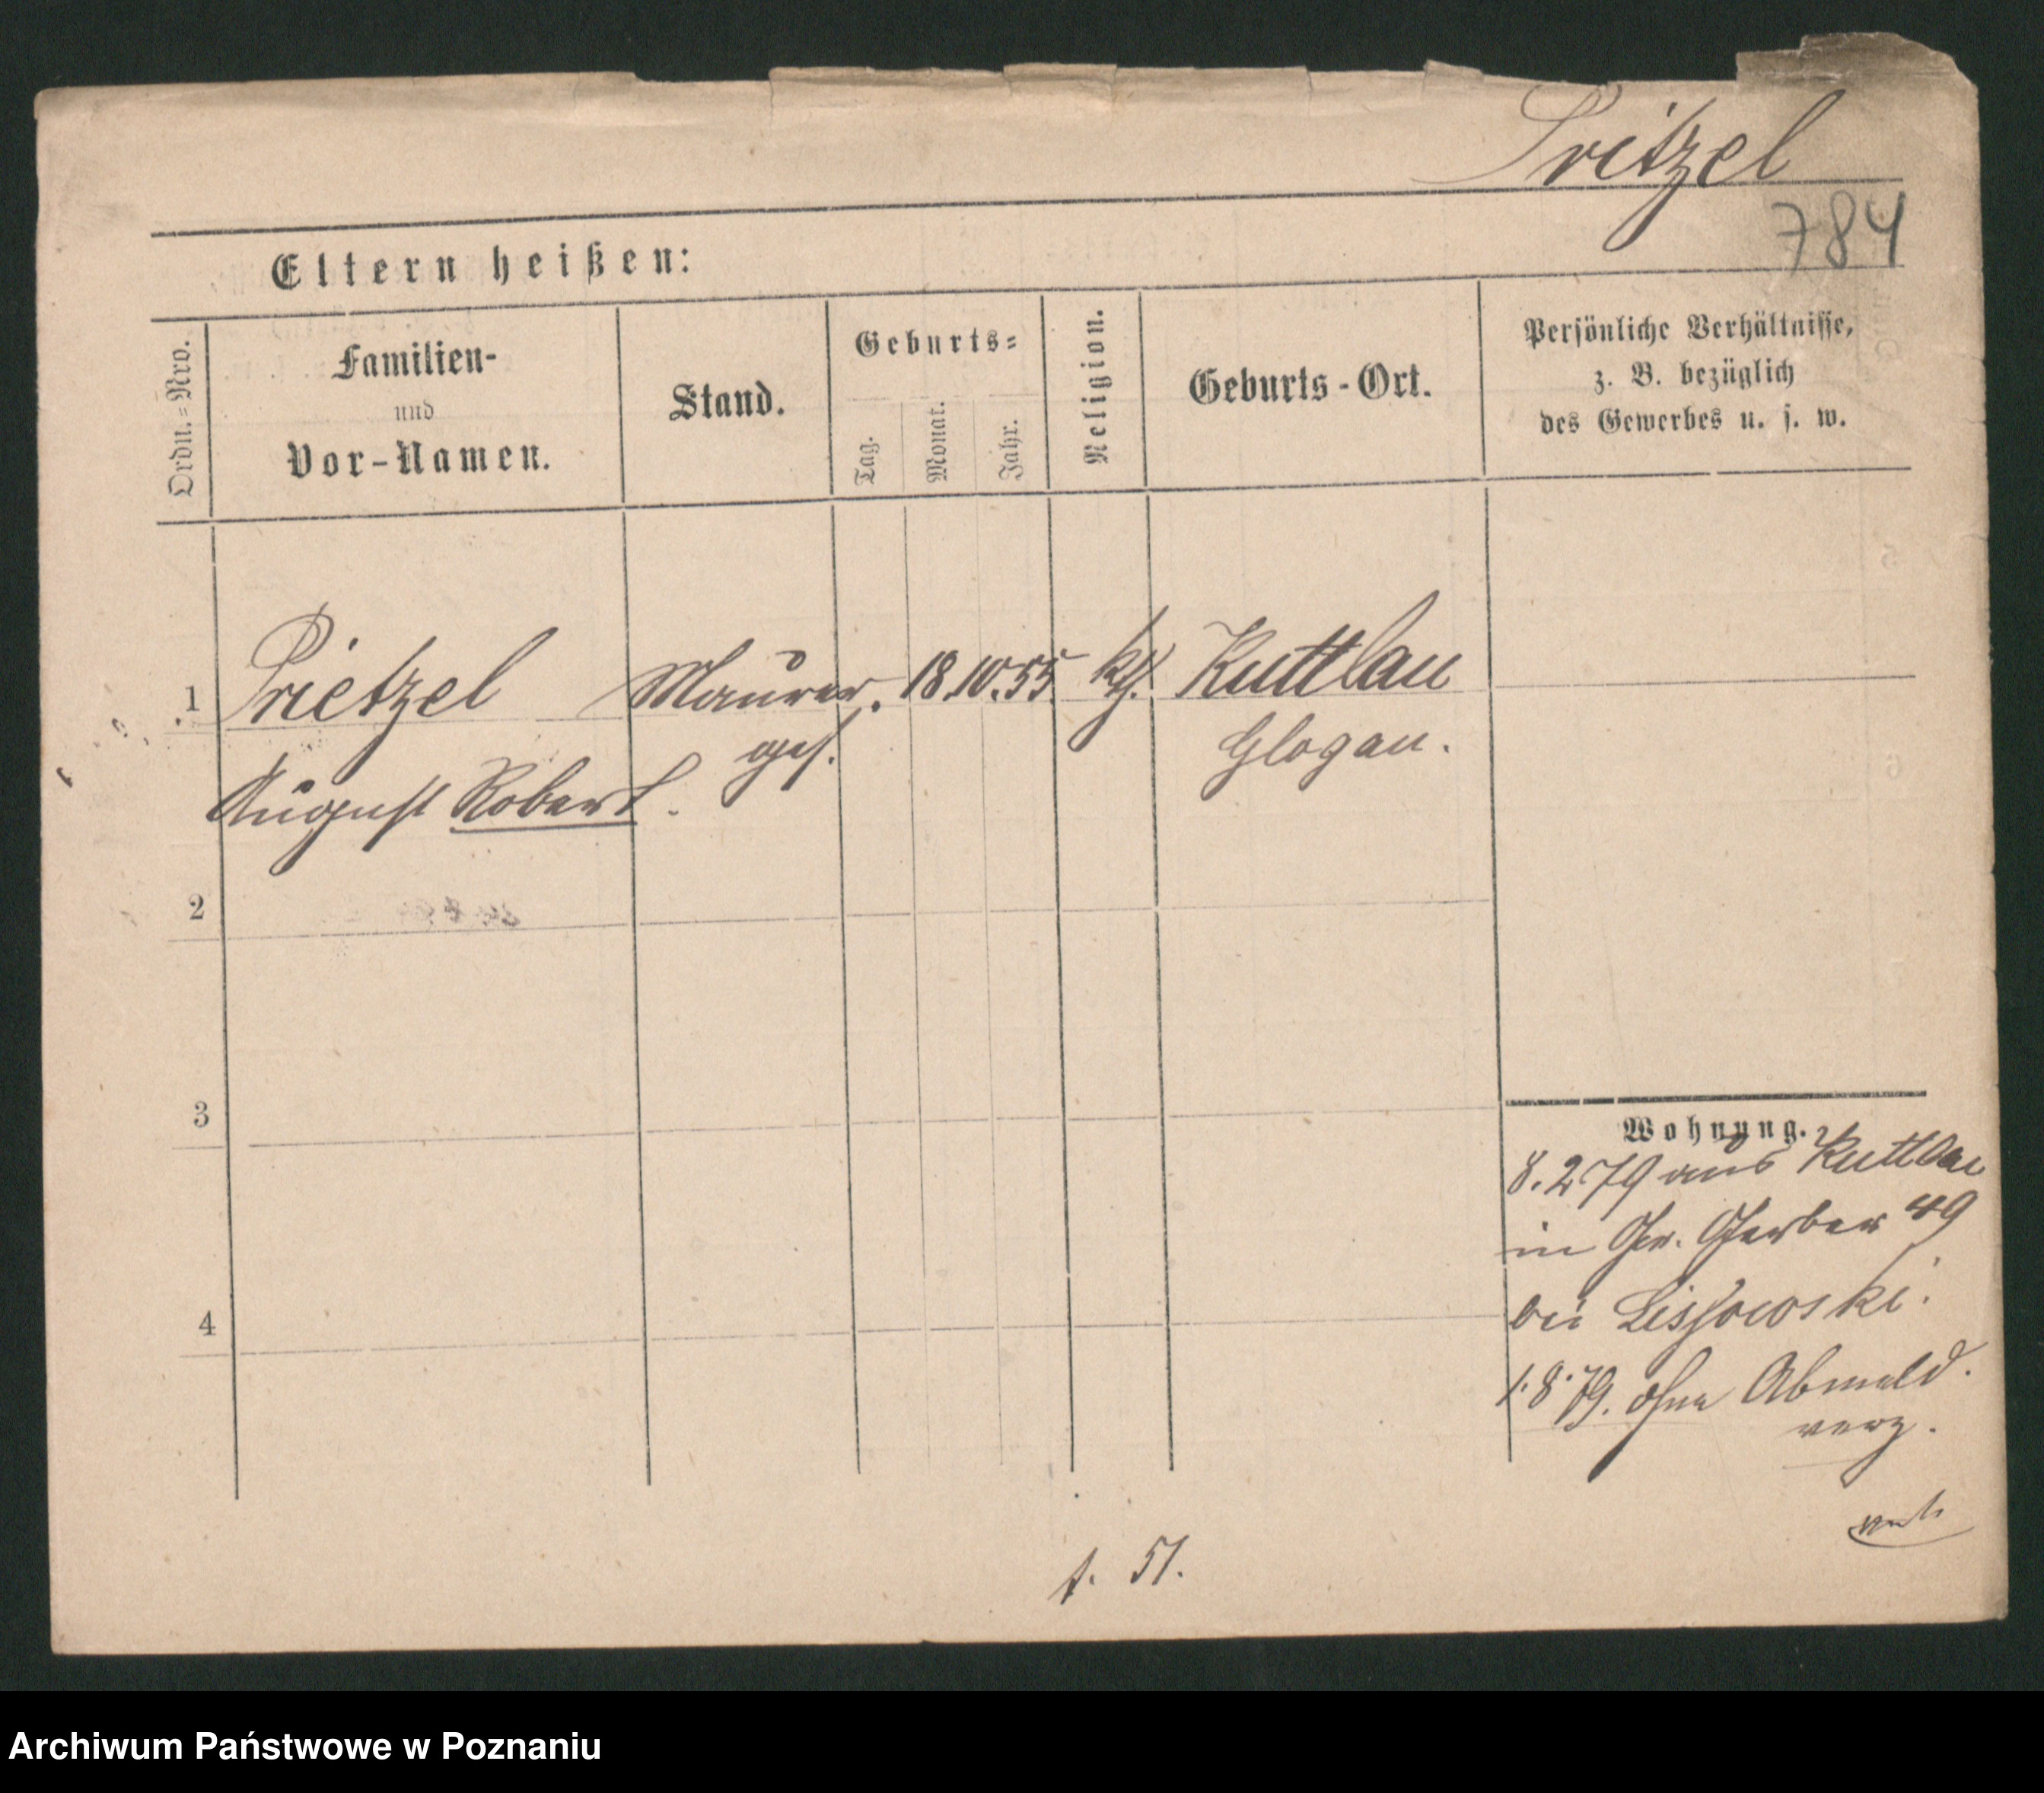 Pritzel
784
Eltern heißen:
Ordn.=Nro.
Familien-
und
Vor-Namen.
Stand.
Geburts=
Tag.
Monat.
Jahr.
Religion.
Geburts-Ort.
Persönliche Verhältnisse,
z. B. bezüglich
des Gewerbes u. s. w.
1
Prietzel
Maurer.
18.10.55
kth.
Kuttlau
ges.
Glogau.
August Robert.
2
3
Wohnung.
8.2 79 aus Kuttlau
in Gr. Gerber 49
4
bei Lissowski.
1.8.79. ohne Abmeld.
verz.
f. 51.
Archiwum Państwowe w Poznaniu